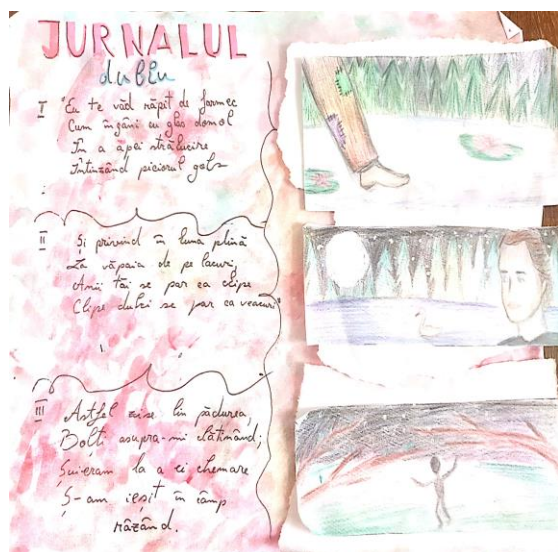 JURNALUL
dublu
I "Eu te văd răpit de farmec
Cum îngâni cu glas domol
În a apei strălucire
Întinzând piciorul gol"
II Și privind în luna plină
La văpaia de pe lacuri,
Anii tăi se par ca clipe
Clipe dulci se par ca veacuri"
III Astfel zise lin pădurea,
Bolți asupra-mi clătinând;
Șuieram la a ei chemare
Ș-am ieșit în câmp
râzând.